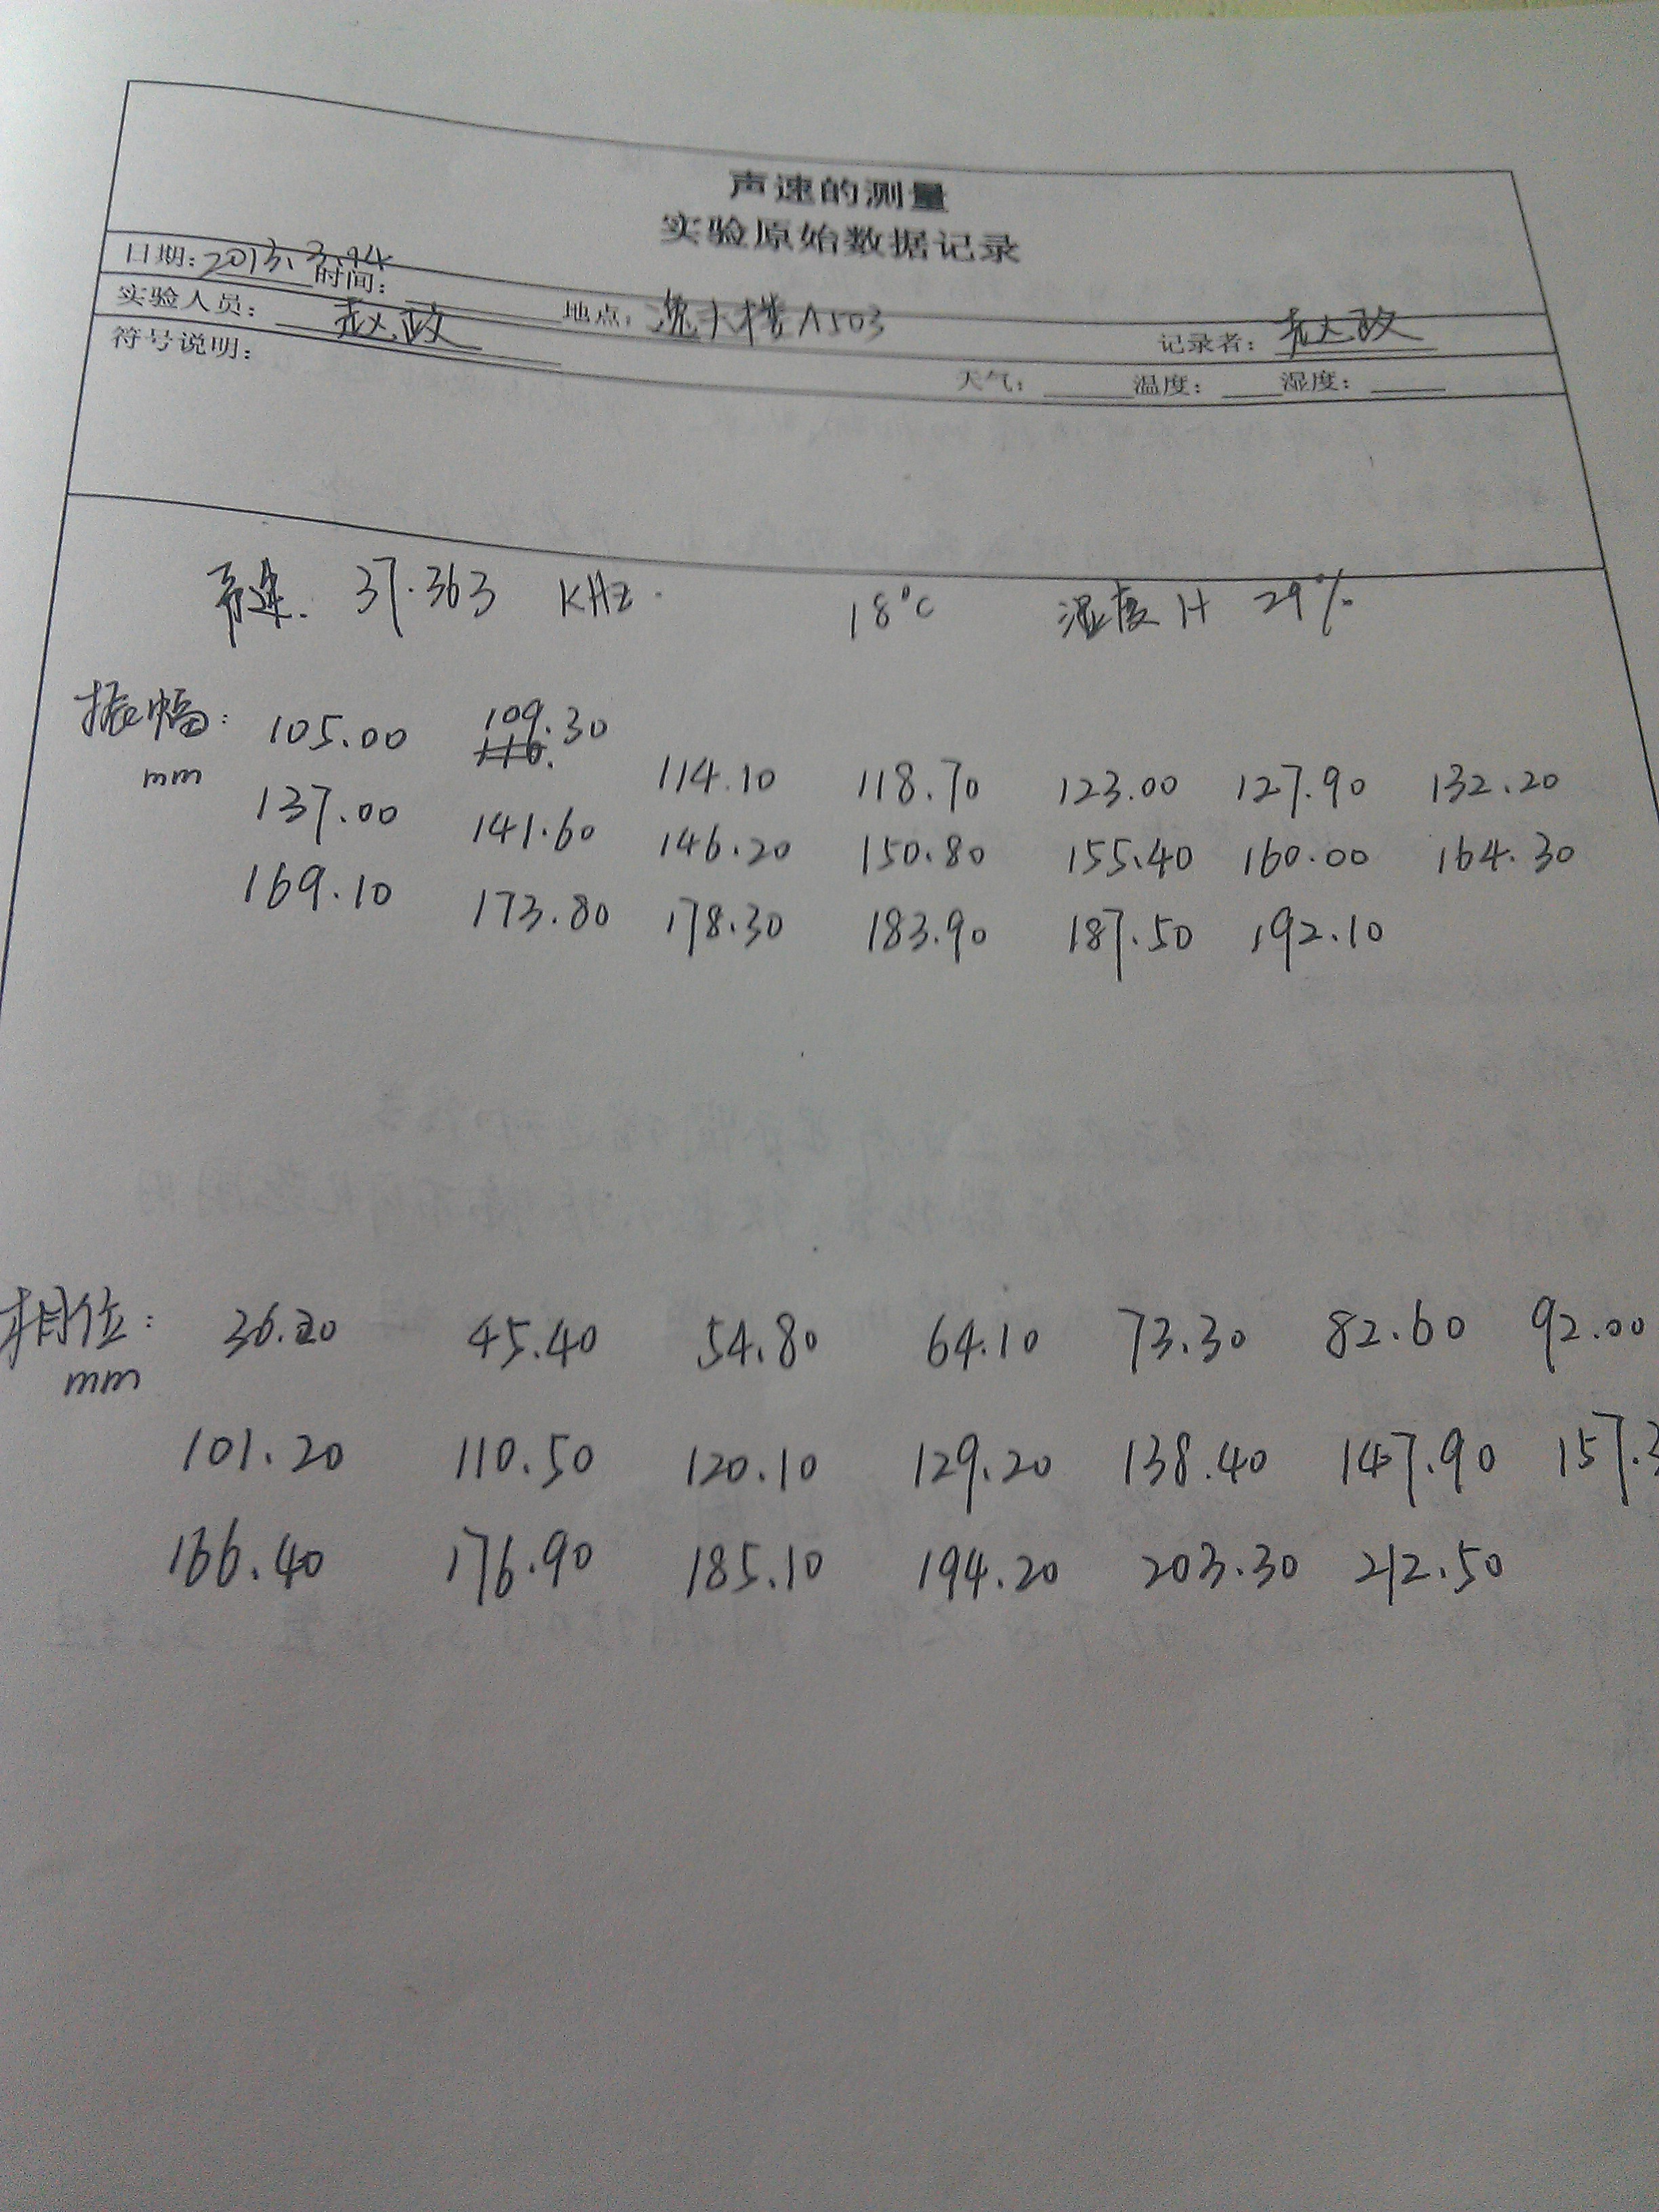 声速的测量
实验原始数据记录
日期:2013.3.14 时间:
实验人员: 赵政 地点: 逸夫楼A503 记录者: 赵政
符号说明: 天气: 温度: 湿度:
声速. 37.363 KHz. 18°C 湿度H 29%
振幅: 105.00 109.30 114.10 118.70 123.00 127.90 132.20
mm 137.00 141.60 146.20 150.80 155.40 160.00 164.30
169.10 173.80 178.30 183.90 187.50 192.10
相位: 36.20 45.40 54.80 64.10 73.30 82.60 92.00
mm
101.20 110.50 120.10 129.20 138.40 147.90 157.3
166.40 176.90 185.10 194.20 203.30 212.50